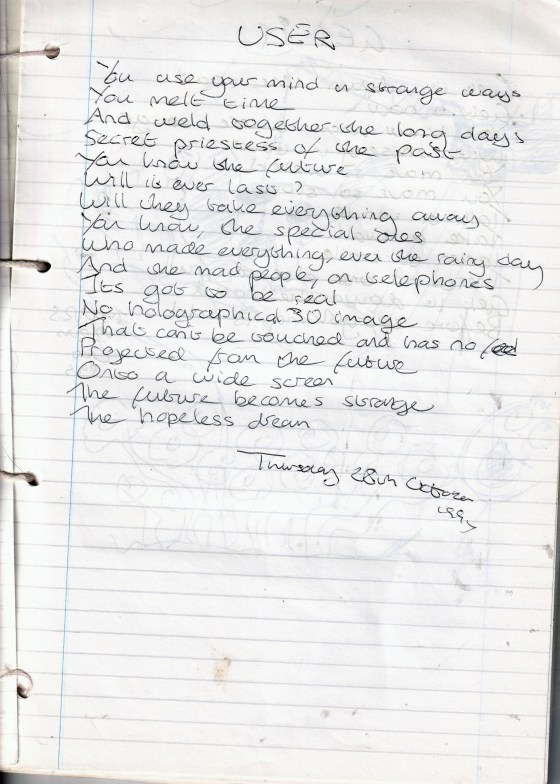 USER
You use your mind in strange ways
You melt time
And weld together the long days
Secret priestess of the past
You know the future
Will it ever last?
Will they take everything away
You know, the special ones
Who made everything, even the rainy day
And the mad people, on telephones
Its got to be real
No holographical 3D image
That cant be touched and has no
Projected from the future
Onto a wide screen
The future becomes strange
The hopeless dream
Thursday 28th October